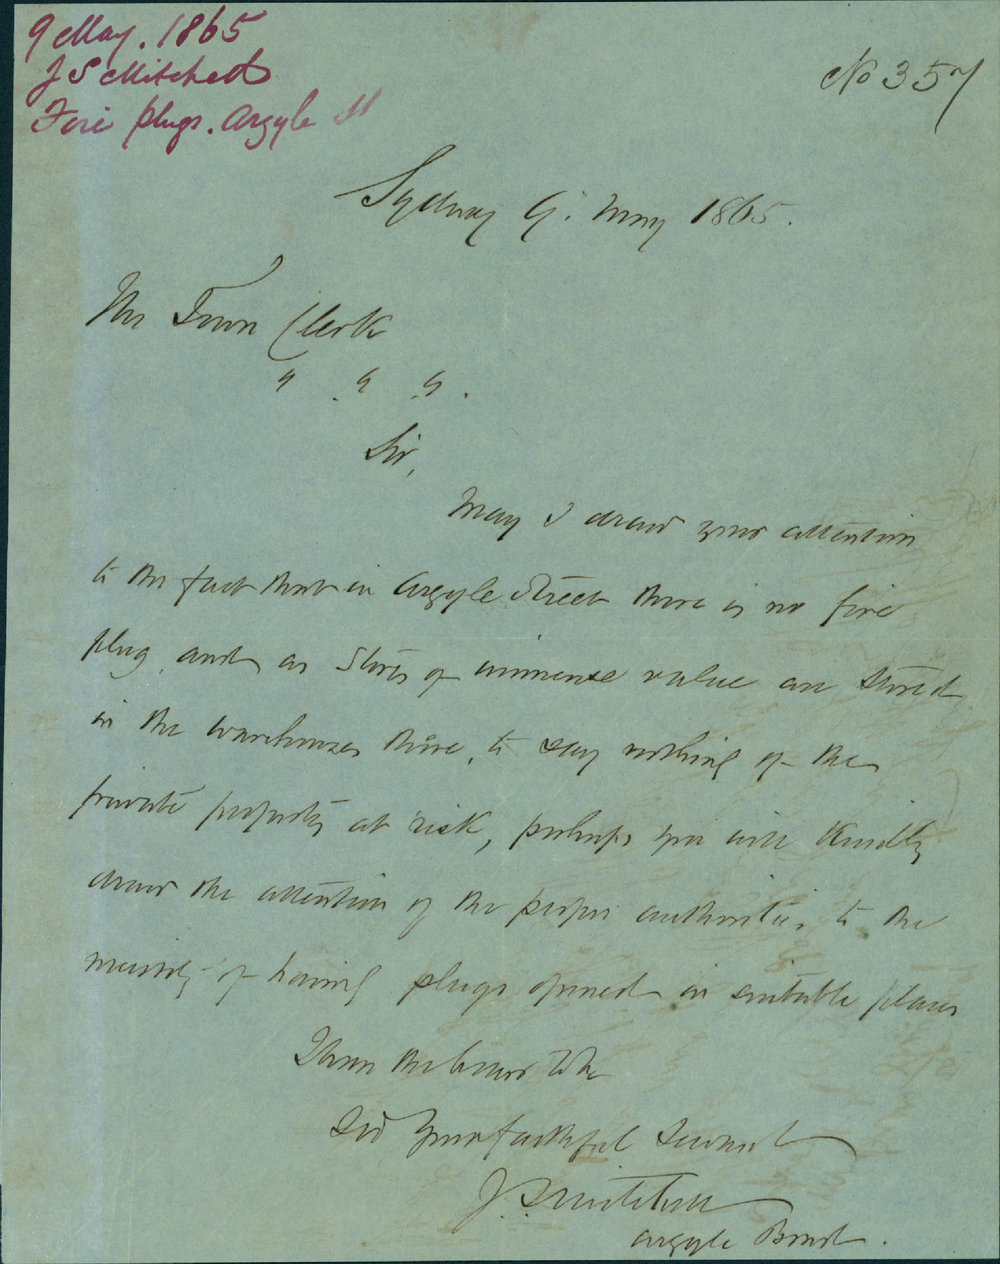 9 May. 1865
J S Mitchell
Fire plugs. Argyle St
No 357
Sydney 9. May 1865.
The Town Clerk
" " " .
Sir,
May I draw your attention
to the fact that in Argyle Street there is no fire
plug, and as Stores of immense value are stored
in the warehouses there, to say nothing of the
private property at risk, perhaps you will kindly
draw the attention of the proper authorities to the
necessity of having plugs opened in suitable places
I have the honor to be
Sir Your faithful Servant
J. S. Mitchell
Argyle Bond.